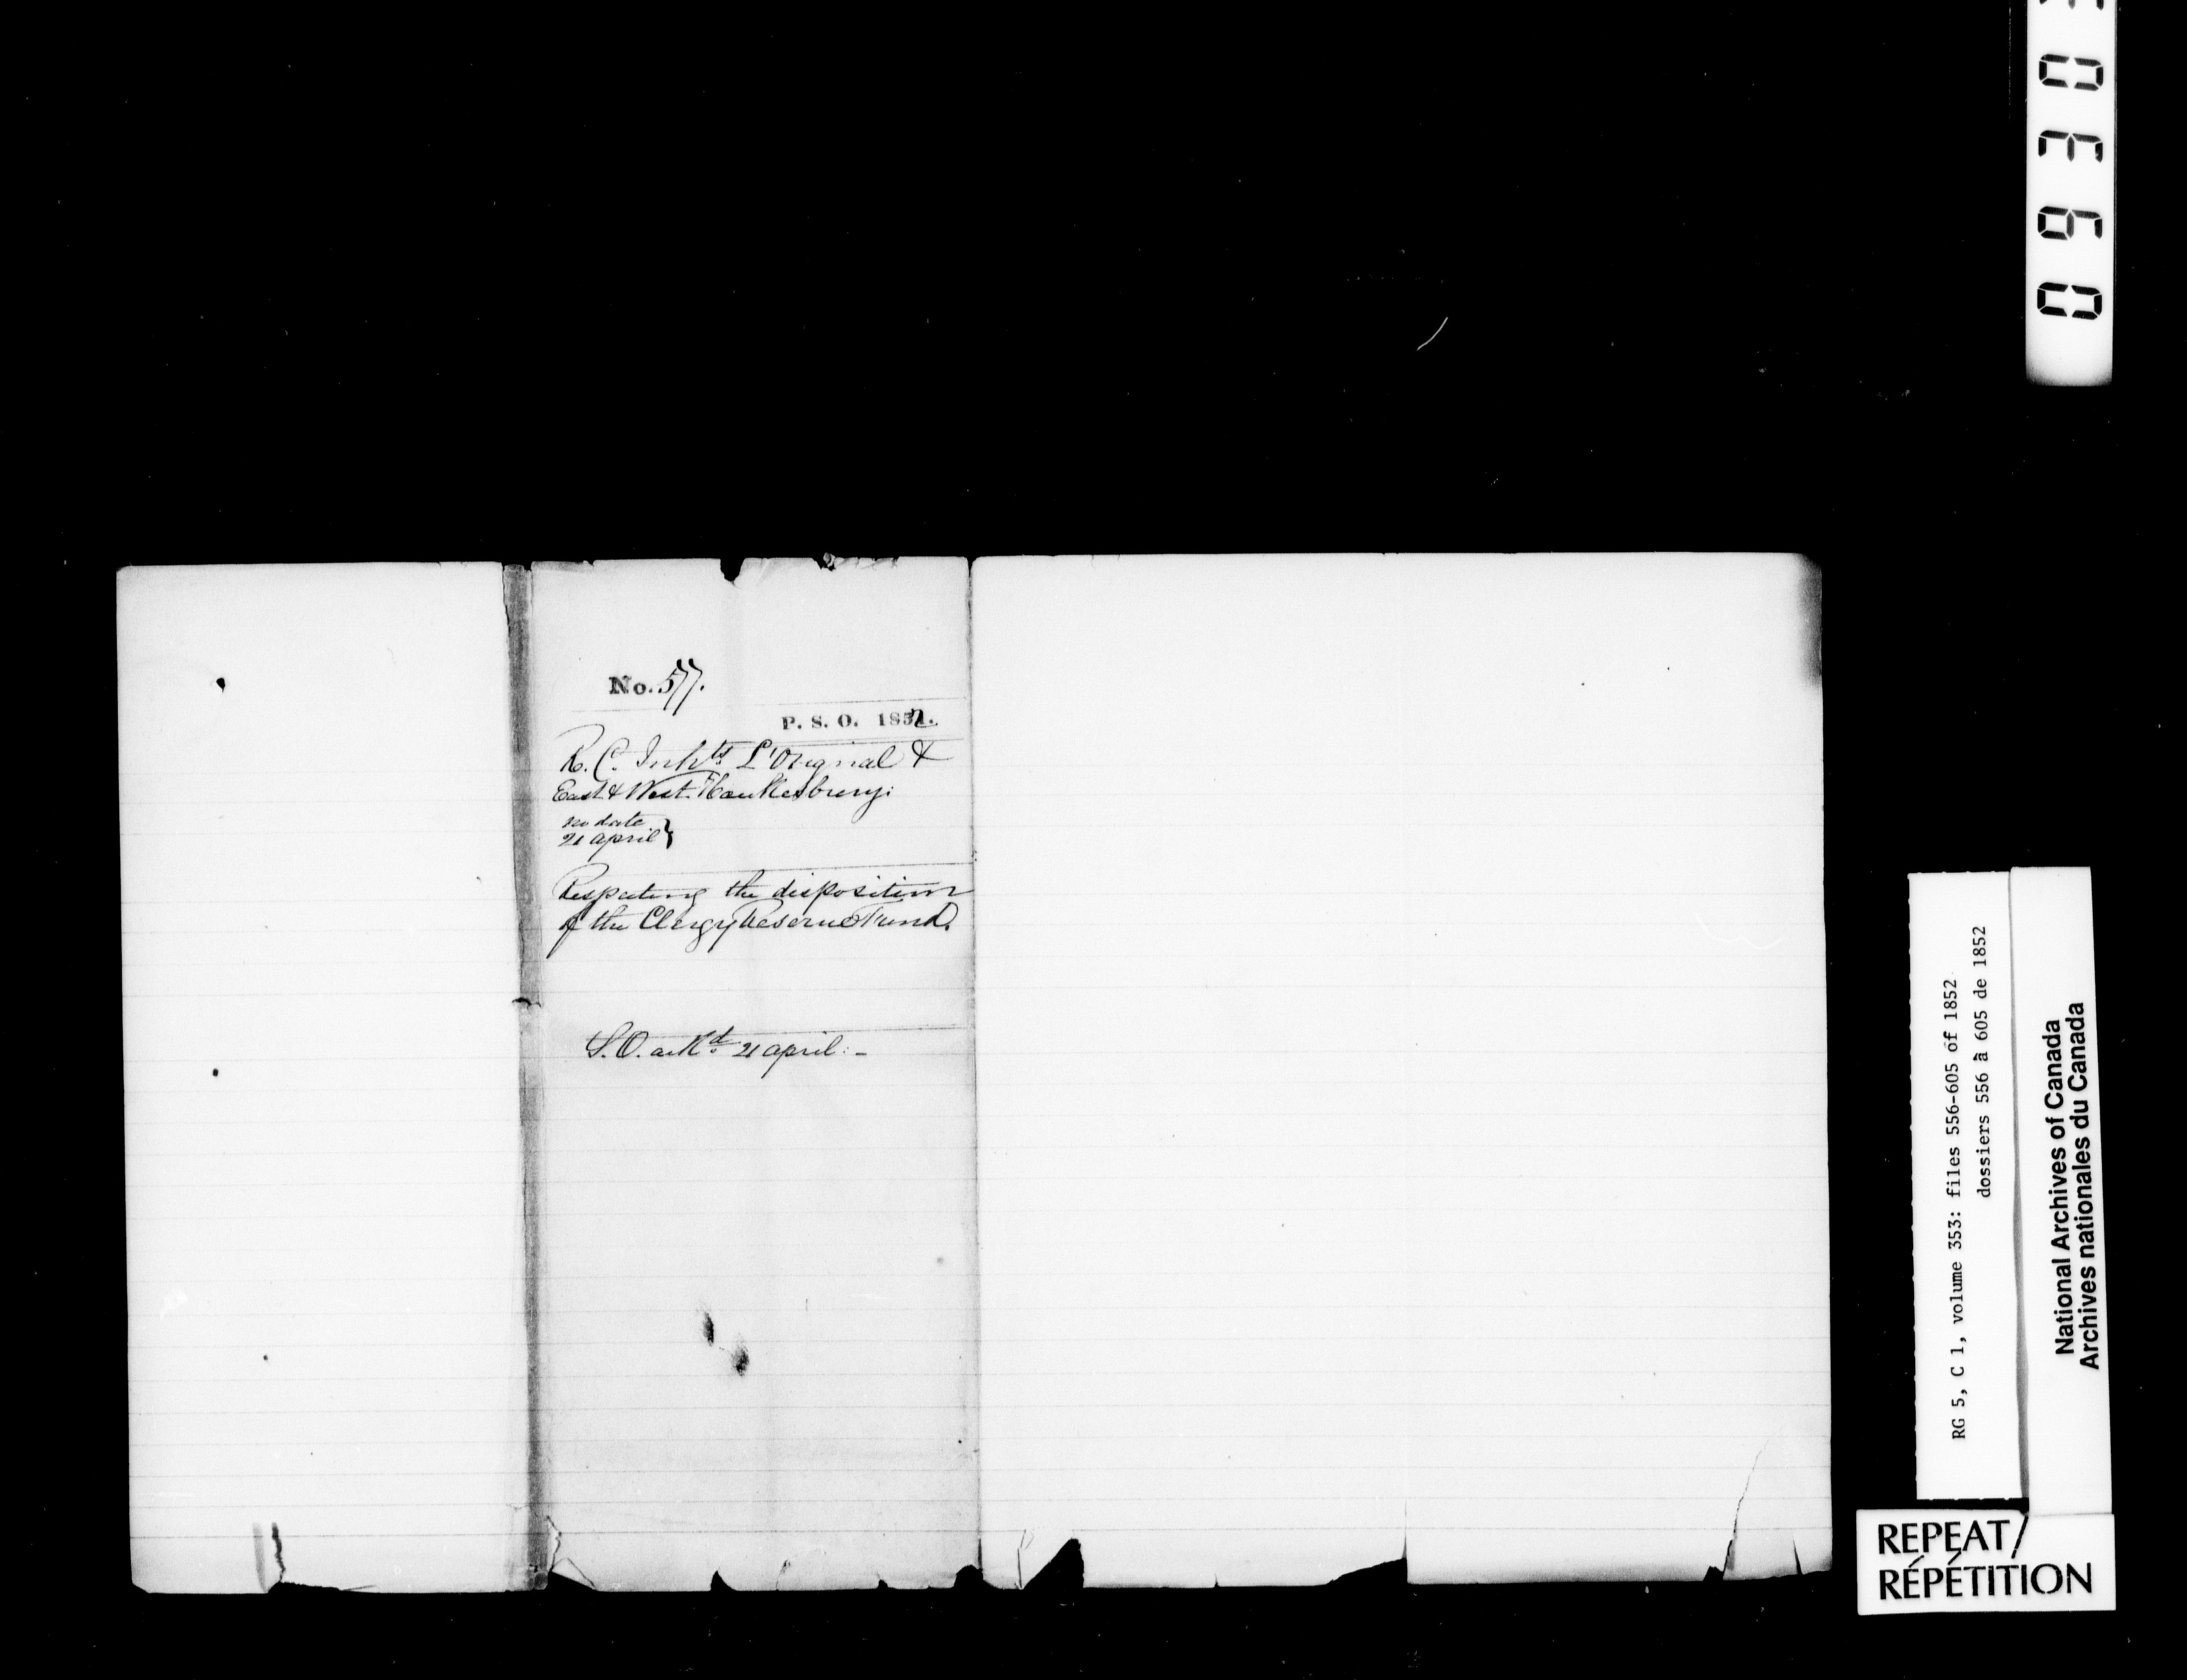 No. 577.
P. S. O. 1852.
R. C. Inhts. L'Orignal &
East & West. Hawkesbury:
no date
21 April }
Respecting the disposition
of the Clergy Reserve Fund.
S. O. ackd. 21 April: -
RG 5, C 1, volume 353: files 556-605 of 1852
dossiers 556 à 605 de 1852
National Archives of Canada
Archives nationales du Canada
REPEAT/
RÉPÉTITION